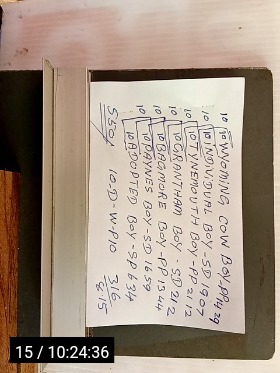 10 WYNOMING COW BOY-PP1429
10 10 INDIVIDUAL BOY-SD 1907
10 10 TYNEMOUTH BOY-PP 2112
10 10 GRANTHAM BOY-SD 212
10 10 BAGMORE BOY-PP 1344
10 10 PAYNES BOY-SD 1659
10 ADOPTED BOY-SP 634
5504 10.D-W-P10 316
15 / 10:24:36